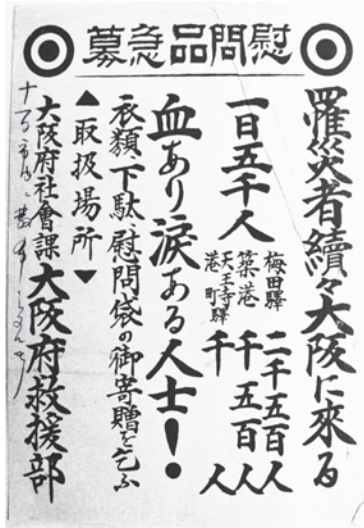 慰問品急募
罹災者續々大阪に來る
一日五千人
梅田驛 二千五百人
築港 千五百人
天王寺驛
港町 千人
血あり涙ある人士！
衣類、下駄、慰問袋の御寄贈を乞ふ
▲取扱場所▼
大阪府社會課 大阪府救援部